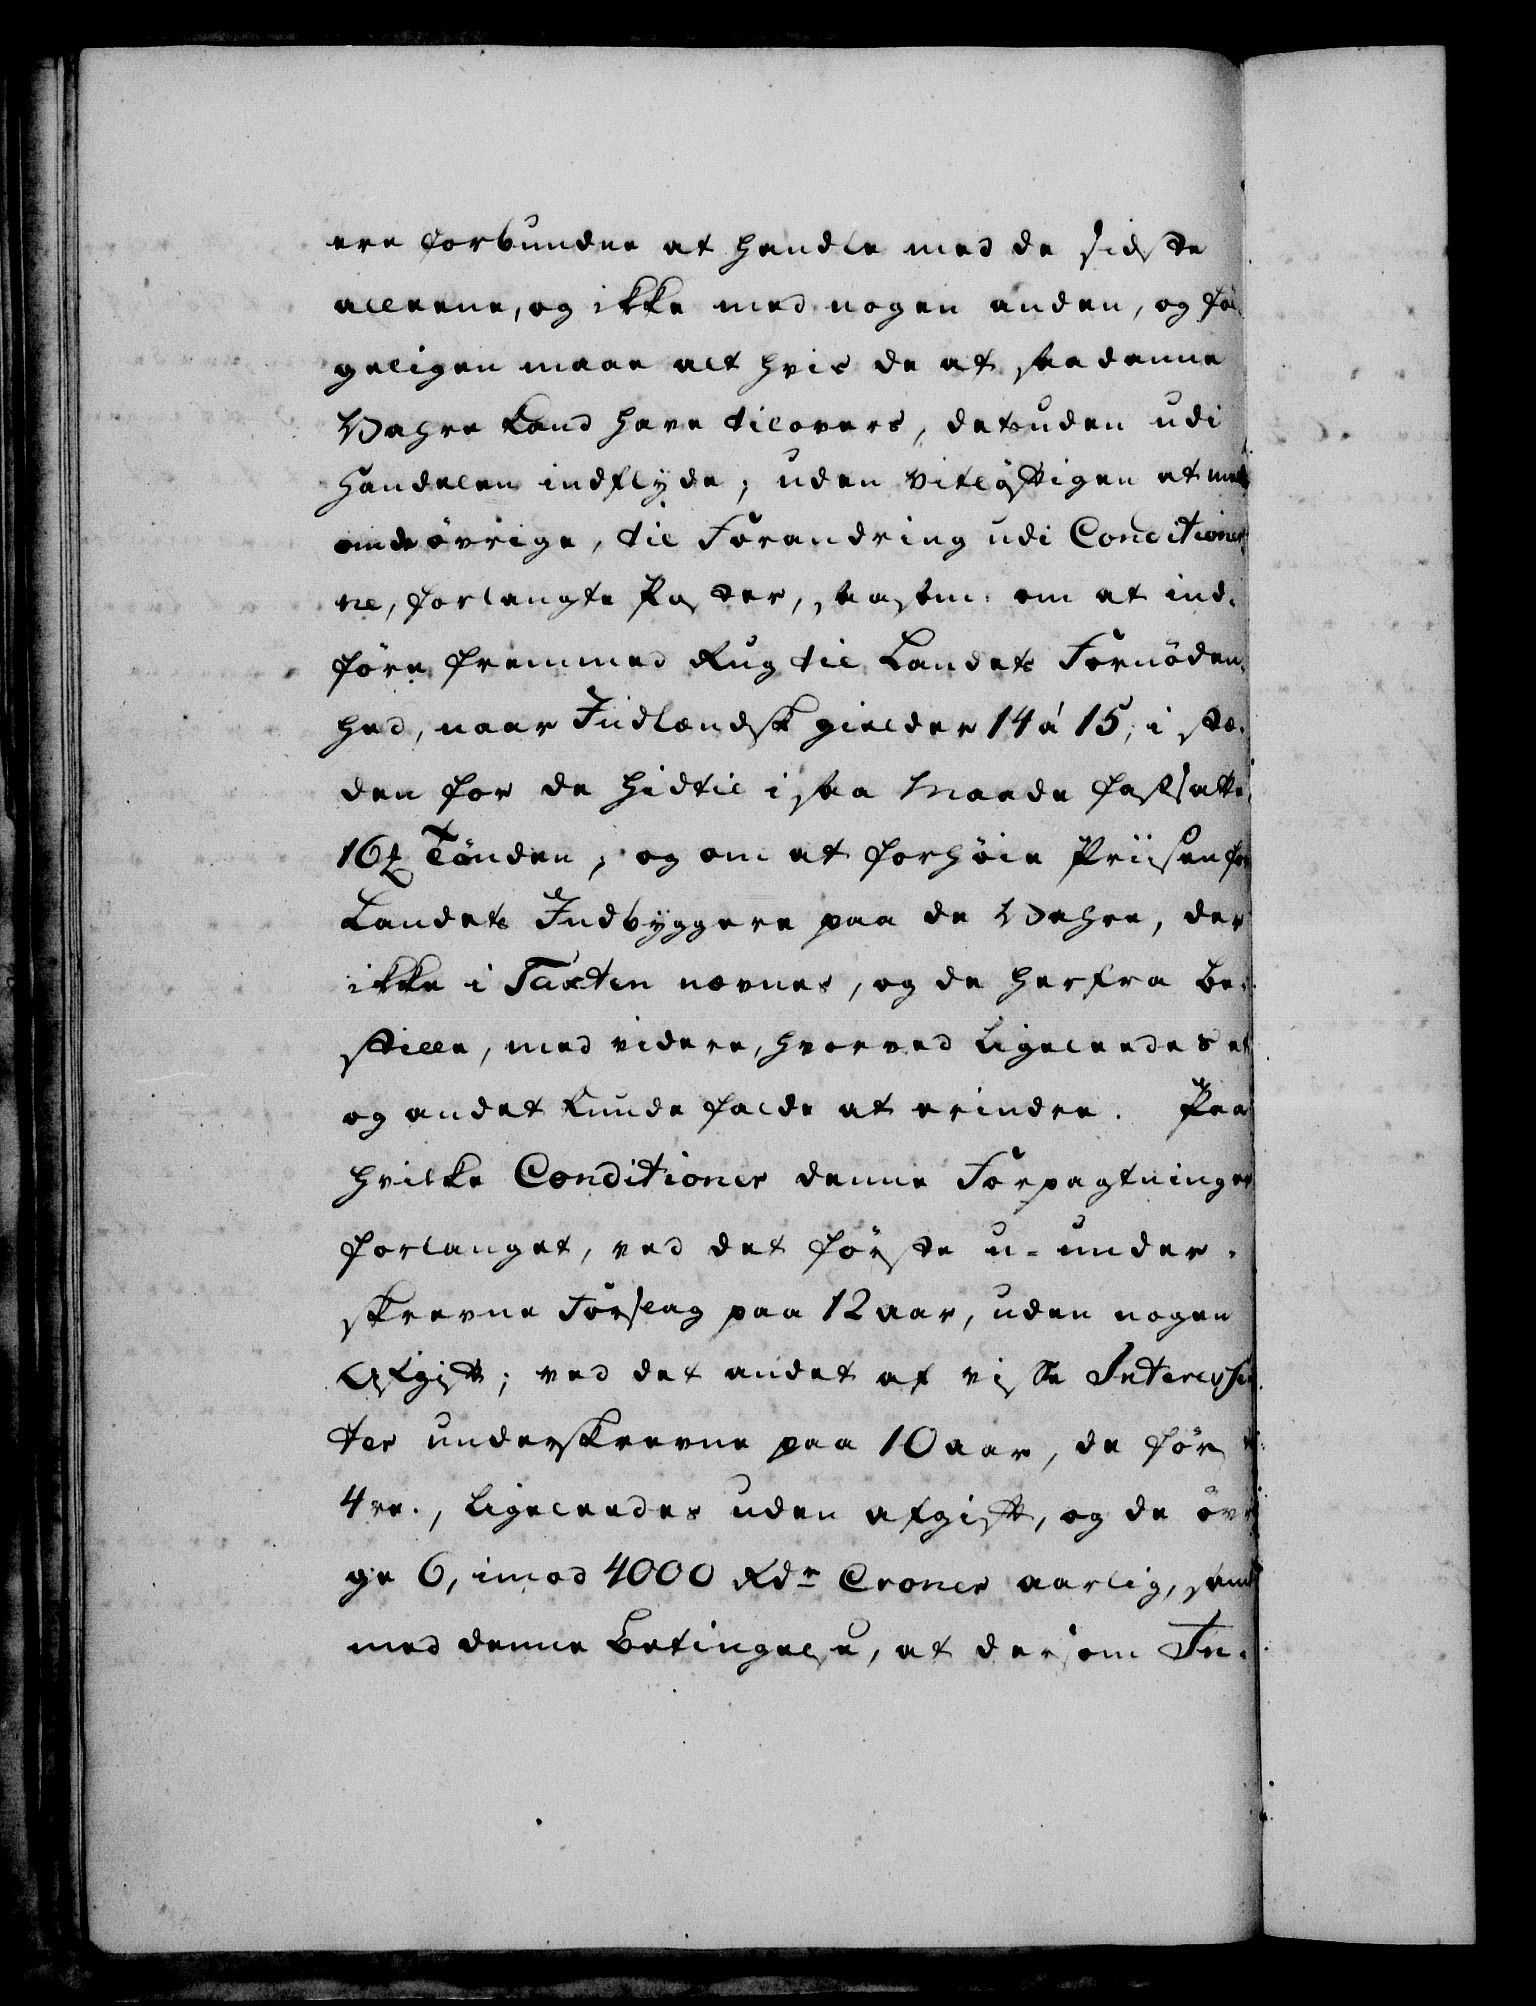 ere forbundne at handle med de sidste
alleene, og ikke med nogen anden, og föl¬
geligen maae alt hvis de af saadanne
Vahre kand have tilovers, desuden udi
Handelen indflyde; uden vitløftigen at melde
om de övrige, til Forandring udi Conditioner¬
ne, forlangte Poster, saasom: om at ind¬
före fremmed Rug til Landets Fornöden¬
hed, naar Indlændsk gielder 14 á 15, i stæ¬
den for de hidtil i saa Maade fastsatte
16 ß Tönden; og om at forhöie Priisen for
Landets Indbyggere paa de Vahre, der
ikke i Taxten nævnes, og de herfra be¬
stille, med videre, hvorved ligeleedes et
og andet kunde falde at erindre. Paa
hvilke Conditioner denne Forpagtning er
forlanget, ved det förste u-under¬
skrevne Forslag paa 12 aar, uden nogen
Afgift; ved det andet af visse Interessen¬
ter underskrevne paa 10 aar, de förste
4re., ligeleedes uden afgift, og de övri¬
ge 6, imod 4000 Rdr Croner aarlig, samt
med denne Betingelse, at dersom In¬